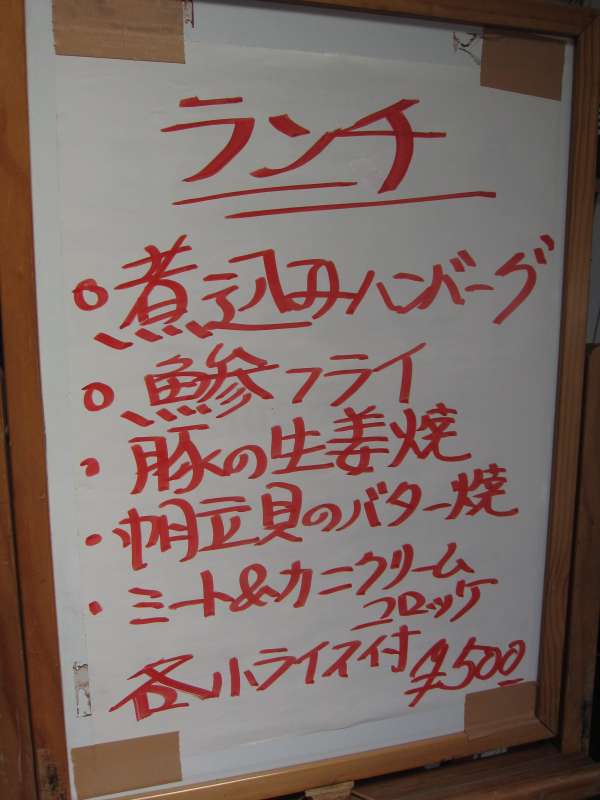 ランチ
○煮込みハンバーグ
○鯵フライ
・豚の生姜焼
・帆立貝のバター焼
・ミート&カニクリーム
コロッケ
各小ライス付 ¥500